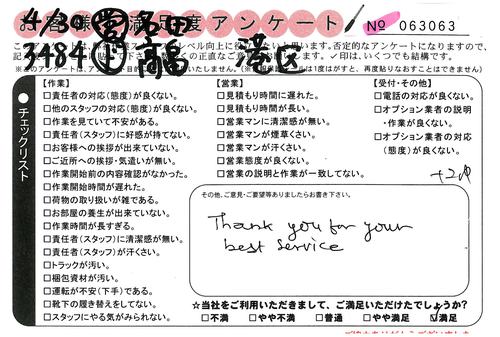 4/30 営 多田
お客様満足度アンケート
No 063063
3484 作 福 港区
レベル向上に役
思います。否定的なアンケートになりますので、
正直なご
✓印は、いくつでも結構です。
チェックリスト
【作業】
□責任者の対応(態度)が良くない。
□他のスタッフの対応(態度)が良くない。
□作業を見ていて不安がある。
□責任者(スタッフ)に好感が持てない。
□お客様への挨拶が出来ていない。
□ご近所への挨拶・気遣いが無い。
□作業開始前の内容確認がなかった。
□作業開始時間が遅れた。
□荷物の取り扱いが雑である。
□お部屋の養生が出来ていない。
□作業時間が長すぎる。
□責任者(スタッフ)に清潔感が無い。
□責任者(スタッフ)が汗くさい。
□トラックが汚い。
□梱包資材が汚い。
□運転が不安(下手)である。
□靴下の履き替えをしてない。
□スタッフにやる気がみられない。
【営業】
□見積もり時間に遅れた。
□見積もり時間が長い。
□営業マンに清潔感が無い。
□営業マンが煙草くさい。
□営業マンが汗くさい。
□営業態度が良くない。
□営業の説明と作業が一致してない。
【受付・その他】
□電話の対応が良くない。
□オプション業者の説明
・作業が良くない。
□オプション業者の対応
(態度)が良くない。
その他、ご意見・ご要望等ありましたらお書き下さい。
Thank you for your
best service
☆当社をご利用いただきまして、ご満足いただけたでしょうか?
□不満 □やや不満 □普通 □やや満足 ☑満足